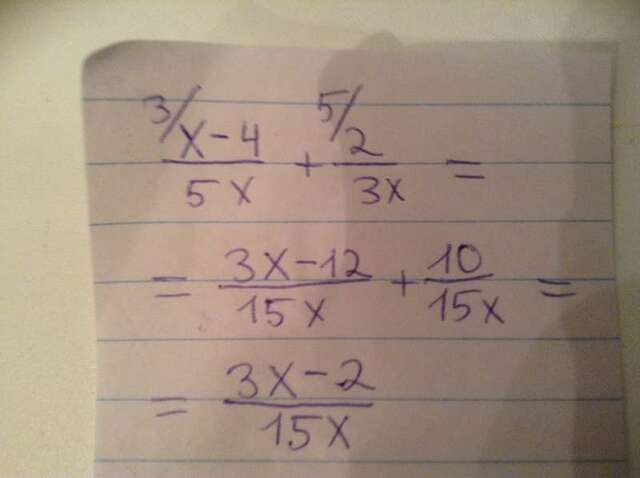 3/ x-4 / 5x + 5/ 2 / 3x =
= 3x-12 / 15x + 10 / 15x =
= 3x-2 / 15x